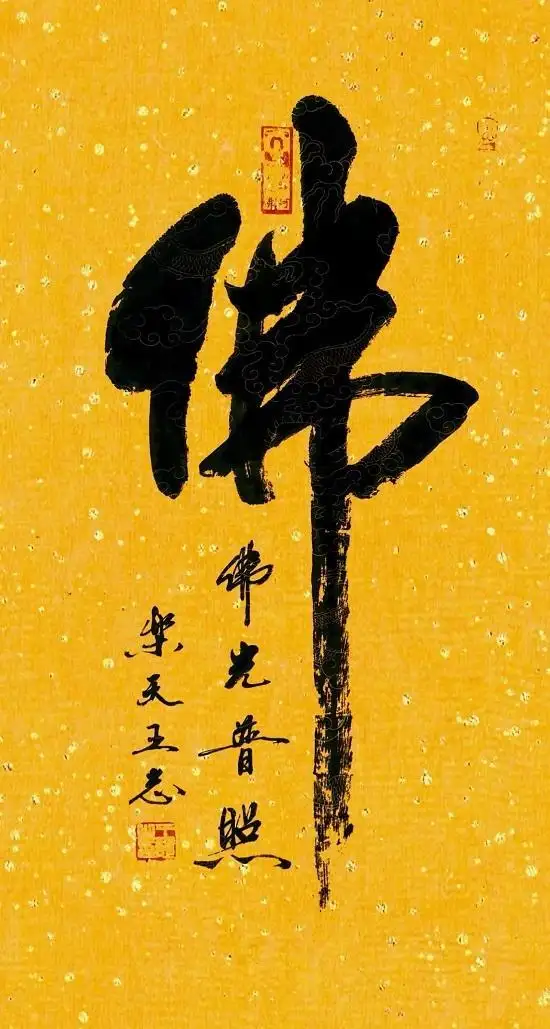 佛
佛光普照
樂天王志